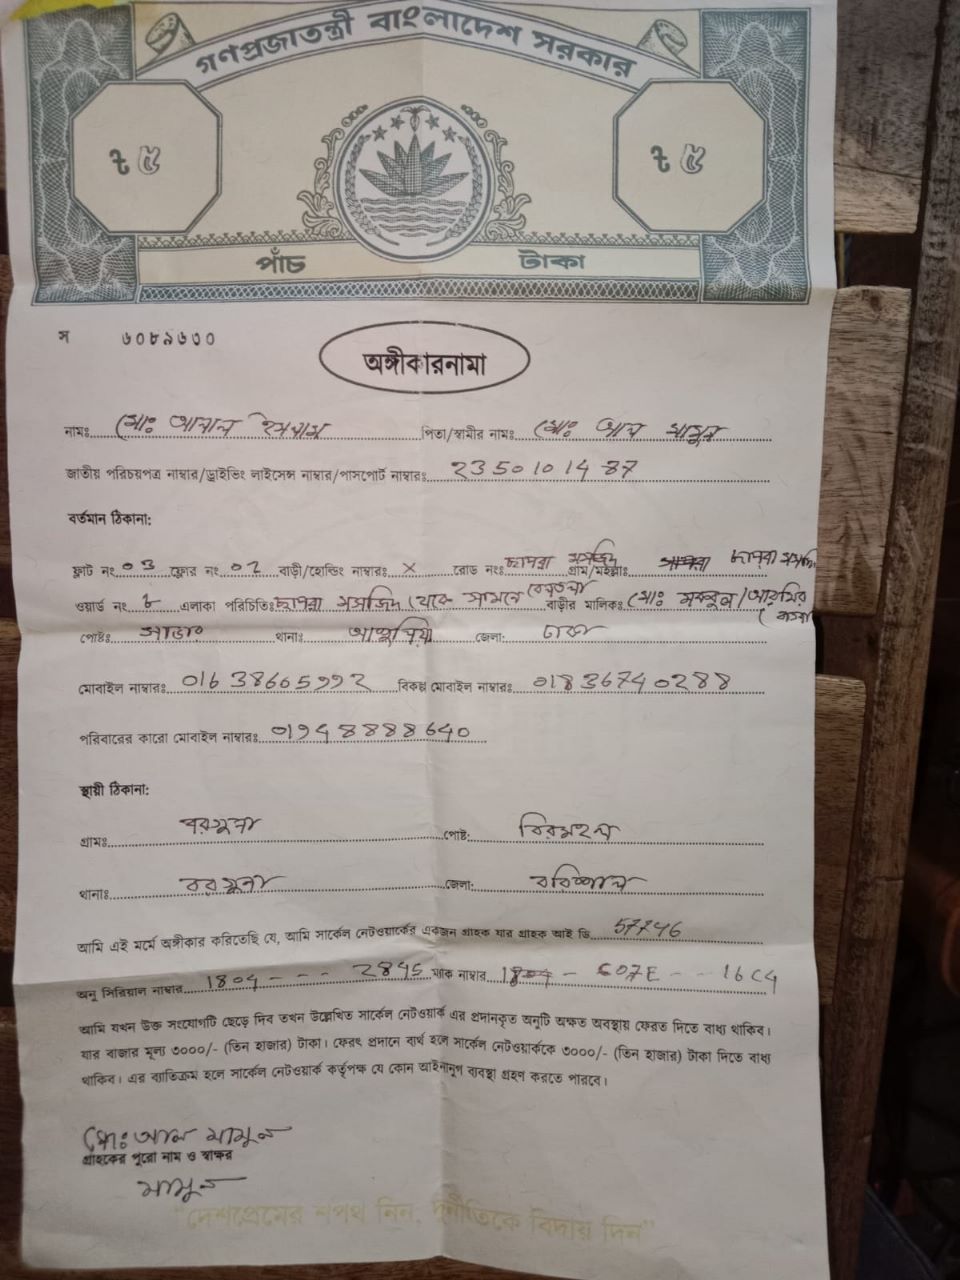 গণপ্রজাতন্ত্রী বাংলাদেশ সরকার
৳ ৫ ৳ ৫
পাঁচ টাকা
স ৬০৮৯৬৩০
অঙ্গীকারনামা
নামঃ মোঃ আলাল ইসলাম পিতা/স্বামীর নামঃ মোঃ আল মামুন
জাতীয় পরিচয়পত্র নাম্বার/ড্রাইভিং লাইসেন্স নাম্বার/পাসপোর্ট নাম্বারঃ 2350101487
বর্তমান ঠিকানা:
ফ্লাট নং ০৩ ফ্লোর নং ০২ বাড়ী/হোল্ডিং নাম্বারঃ X রোড নংঃ ছাপরা মসজিদ গ্রাম/মহল্লাঃ ছাপরা মসজিদ
ওয়ার্ড নং ৮ এলাকা পরিচিতিঃ ছাপরা মসজিদ থেকে সামনে বাড়ীর মালিকঃ মোঃ
পোষ্টঃ সাভার থানাঃ আশুলিয়া জেলা: ঢাকা
মোবাইল নাম্বারঃ 01638605992 বিকল্প মোবাইল নাম্বারঃ 01836740288
পরিবারের কারো মোবাইল নাম্বারঃ 01948888640
স্থায়ী ঠিকানা:
গ্রামঃ বরগুনা পোষ্ট:
থানাঃ বরগুনা জেলা: বরিশাল
আমি এই মর্মে অঙ্গীকার করিতেছি যে, আমি সার্কেল নেটওয়ার্কের একজন গ্রাহক যার গ্রাহক আই ডি 57746
অনু সিরিয়াল নাম্বার 1804 - - - 2845 ম্যাক নাম্বার 1804 - C07E - - 16C4
আমি যখন উক্ত সংযোগটি ছেড়ে দিব তখন উল্লেখিত সার্কেল নেটওয়ার্ক এর প্রদানকৃত অনুটি অক্ষত অবস্থায় ফেরত দিতে বাধ্য থাকিব।
যার বাজার মূল্য ৩০০০/- (তিন হাজার) টাকা। ফেরৎ প্রদানে ব্যর্থ হলে সার্কেল নেটওয়ার্ককে ৩০০০/- (তিন হাজার) টাকা দিতে বাধ্য
থাকিব। এর ব্যতিক্রম হলে সার্কেল নেটওয়ার্ক কর্তৃপক্ষ যে কোন আইনানুগ ব্যবস্থা গ্রহণ করতে পারবে।
মোঃ আল মামুন
গ্রাহকের পুরো নাম ও স্বাক্ষর
মামুন
"দেশপ্রেমের শপথ নিন, দুর্নীতিকে বিদায় দিন"